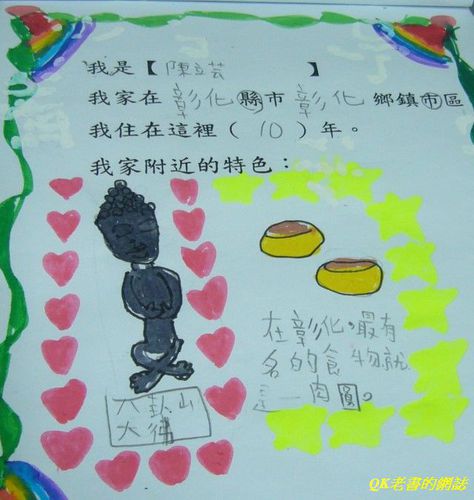 我是【陳立芸】
我家在 彰化 縣市 彰化 鄉鎮市區
我住在這裡（10）年。
我家附近的特色：
八卦山
大佛
在彰化,最有
名的食物就
是一肉圓。
QK老書的網誌